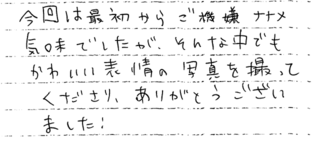 今回は最初からご機嫌ナナメ
気味でしたが、そんな中でも
かわいい表情の写真を撮って
くださり、ありがとうござい
ました!